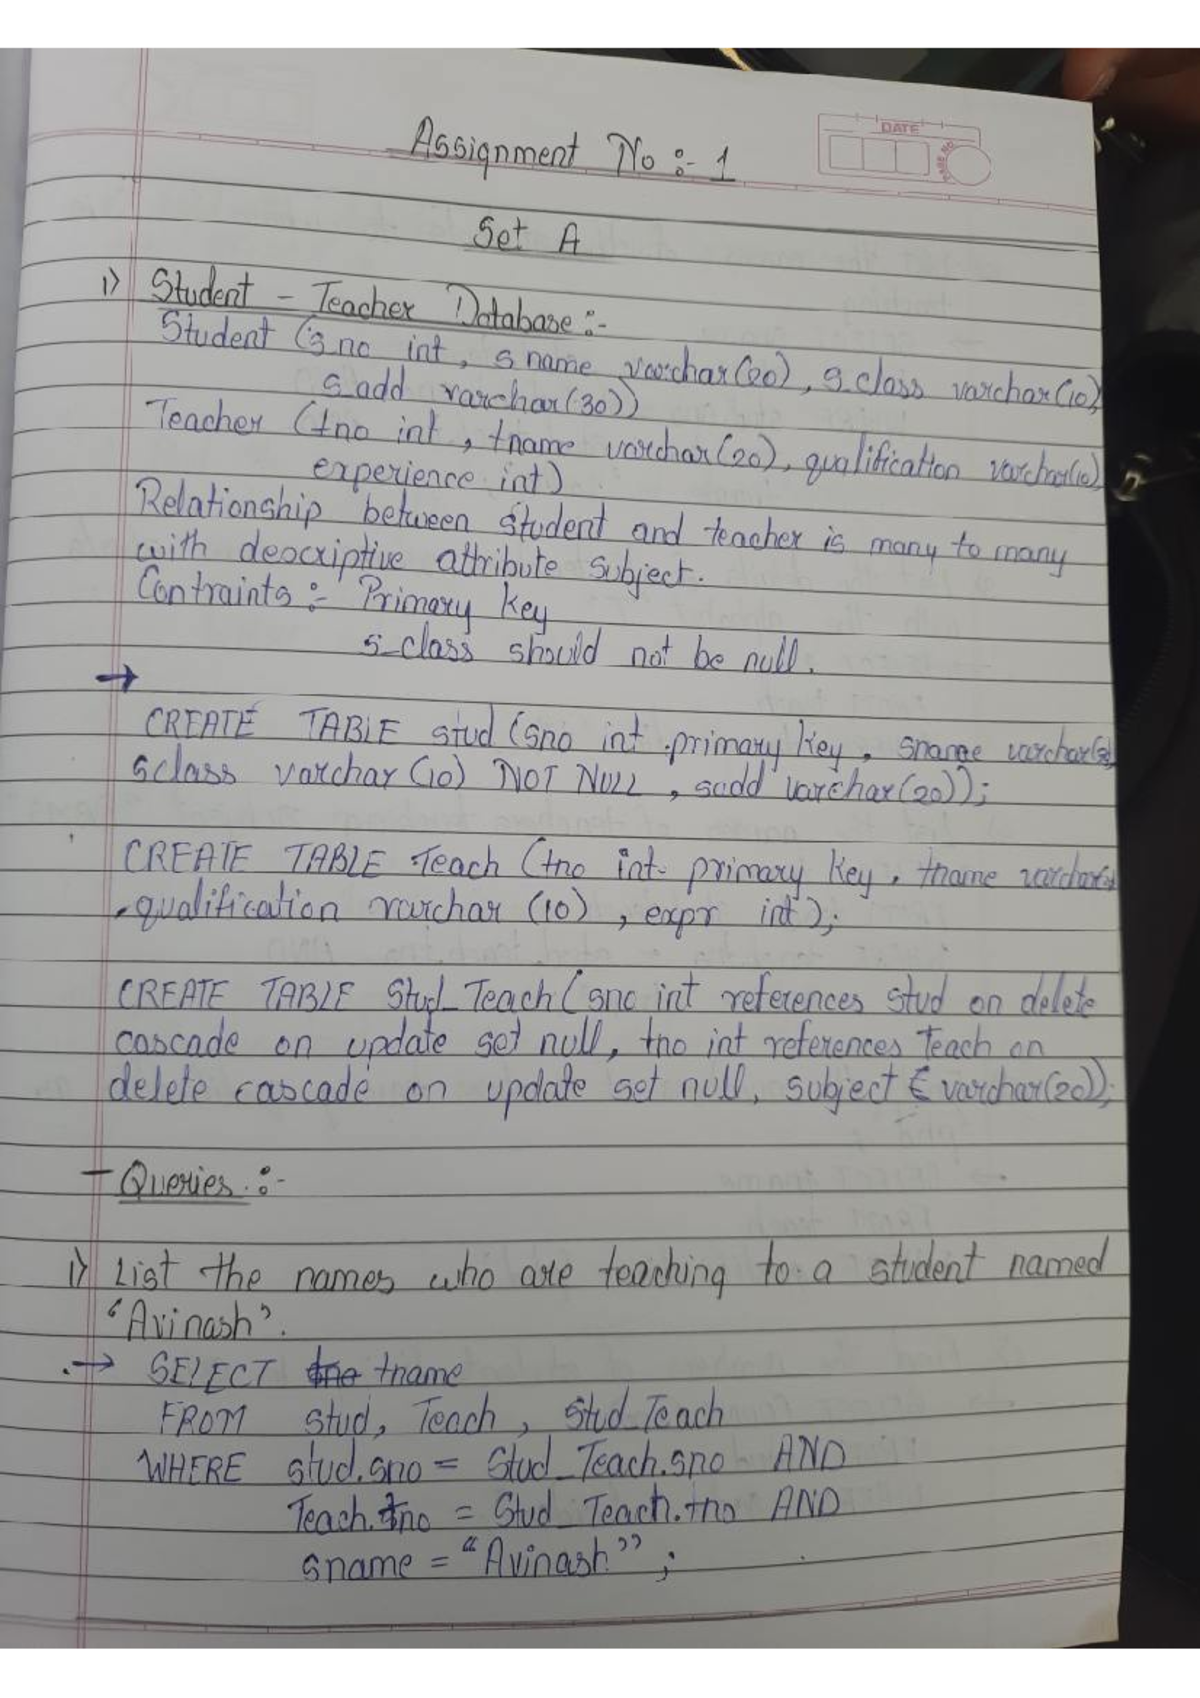 DATE
PAGE NO
Assignment No :- 1
Set A
1) Student - Teacher Database :-
Student (s_no int, s_name varchar(20), s_class varchar(10),
s_add varchar(30))
Teacher (tno int, tname varchar(20), qualification varchar(10),
experience int)
Relationship between student and teacher is many to many
with descriptive attribute subject.
Contraints :- Primary key
s_class should not be null.
→
CREATE TABLE stud (sno int primary key, sname varchar(
sclass varchar (10) NOT NULL, sadd varchar(20));
CREATE TABLE Teach (tno int primary key, tname varchar
, qualification varchar (10), expr int);
CREATE TABLE Stud_Teach (sno int references stud on delete
cascade on update set null, tno int references Teach on
delete cascade on update set null, subject varchar(20));
- Queries :-
1) List the names who are teaching to a student named
'Avinash'.
→ SELECT tname
FROM stud, Teach, Stud_Teach
WHERE stud.sno = Stud_Teach.sno AND
Teach.tno = Stud_Teach.tno AND
sname = "Avinash" ;